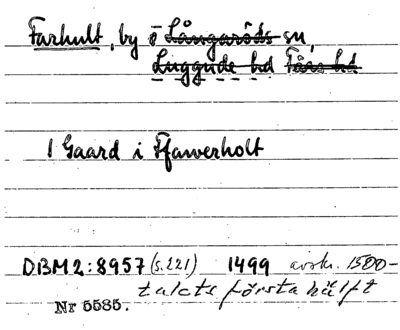 Farhult, by i Långaröds sn,
Luggude hd Färs hd
1 Gaard i Ffawerholt
DBM2:8957 (s.221) 1499 avskr. 1500-
talets första hälft
Nr 5585.